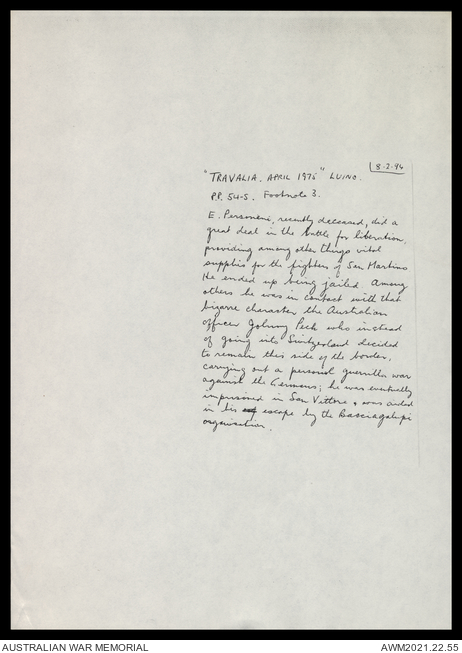 8-2-94
"TRAVALIA. APRIL 1975" LUINO.
P.P. 54-5. Footnote 3.
E. Personeni, recently deceased, did a
great deal in the battle for liberation,
providing among other things vital
supplies for the fighters of San Martino
He ended up being jailed. Among
others he was in contact with that
bizarre character the Australian
officer Johnny Peck who instead
of going into Switzerland decided
to remain this side of the border,
carrying out a personal guerrilla war
against the Germans; he was eventually
imprisoned in San Vittore & was aided
in his escape by the Bacciagaluppi
organisation.
AUSTRALIAN WAR MEMORIAL
AWM2021.22.55